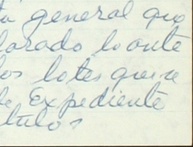 general que
lorado lo ante
los lotes que se
de Expediente
titulos